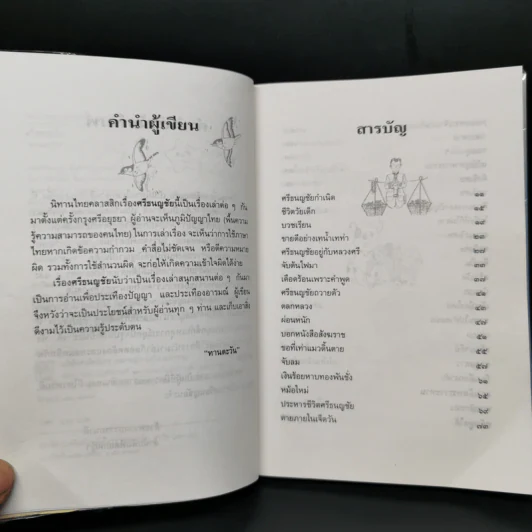 คำนำผู้เขียน
นิทานไทยคลาสสิกเรื่องศรีธนญชัยนี้เป็นเรื่องเล่าต่อ ๆ กัน
มาตั้งแต่ครั้งกรุงศรีอยุธยา ผู้อ่านจะเห็นภูมิปัญญาไทย (พื้นความ
รู้ความสามารถของคนไทย) ในการเล่าเรื่อง จะเห็นว่าการใช้ภาษา
ไทยหากเกิดข้อความกำกวม คำสื่อไม่ชัดเจน หรือตีความหมาย
ผิด รวมทั้งการใช้สำนวนผิด จะก่อให้เกิดความเข้าใจผิดได้ง่าย
เรื่องศรีธนญชัยนับว่าเป็นเรื่องเล่าสนุกสนานต่อ ๆ กันมา
เป็นการอ่านเพื่อประเทืองปัญญา และประเทืองอารมณ์ ผู้เขียน
จึงหวังว่าจะเป็นประโยชน์สำหรับผู้อ่านทุก ๆ ท่าน และเก็บเอาสิ่ง
ดีงามไว้เป็นความรู้ประดับตน
"ทานตะวัน"
สารบัญ
ศรีธนญชัยกำเนิด
ชีวิตวัยเด็ก ๑๕
บวชเรียน
ขายดีอย่างเทน้ำเทท่า
ศรีธนญชัยอยู่กับหลวงศรี
จับต้นไฟมา
เดือดร้อนเพราะคำพูด
ศรีธนญชัยถวายตัว
ตลกหลวง
ผ่อนหนัก
บอกหนังสือสังฆราช
ขอที่เท่าแมวดิ้นตาย ๕๕
จับลม ๕๗
เงินร้อยหาบทองพันชั่ง
หม้อใหม่ ๖๕
ประหารชีวิตศรีธนญชัย ๖๙
ตายภายในเจ็ดวัน ๗๓